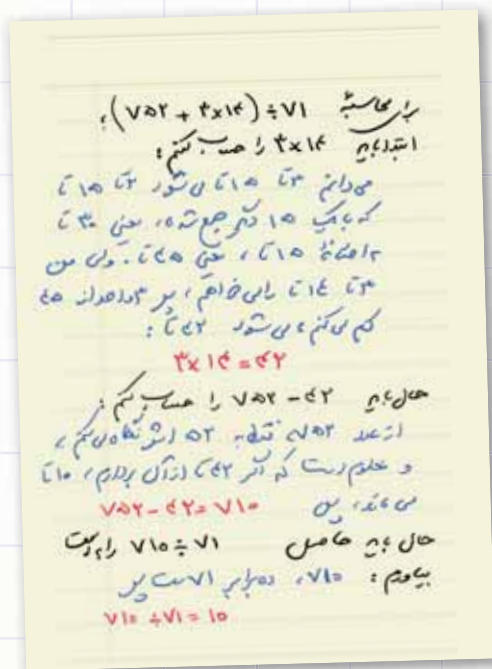 برای محاسبهٔ (۷۵۲ + ۳×۱۴) ÷ ۷۱ ؛
ابتدا باید ۳×۱۴ را حساب کنم :
می‌دانم ۳ تا ۱۵ تا می‌شود ۲ تا ۱۵ تا
که با یک ۱۵ دیگر جمع شده، یعنی ۳۰ تا
به اضافهٔ ۱۵ تا ، یعنی ۴۵ تا . ولی من
۳ تا ۱۴ تا را می‌خواهم ، پس ۳ واحد از ۴۵
کم می‌کنم ، می‌شود ۴۲ تا :
۳×۱۴=۴۲
حال باید ۷۵۲ - ۴۲ را حساب کنم :
از عدد ۷۵۲ فقط به ۵۲ اش نگاه می‌کنم ،
و معلوم است که اگر ۴۲ تا از آن بردارم ، ۱۰ تا
می‌ماند ، پس ۷۵۲-۴۲=۷۱۰
حال باید حاصل ۷۱۰÷۷۱ را به دست
بیاورم : ۷۱۰ ، ده برابر ۷۱ است پس
۷۱۰ ÷۷۱ = ۱۰